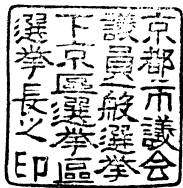 京都市議会
議員一般選挙
下京區選挙區
選挙長之印